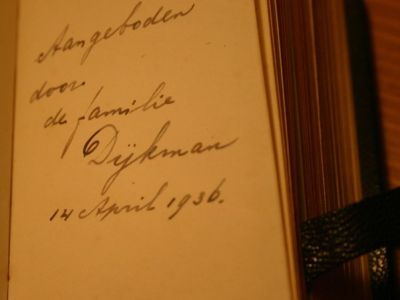 Aangeboden
door
de familie
Dijkman
14 April 1936.